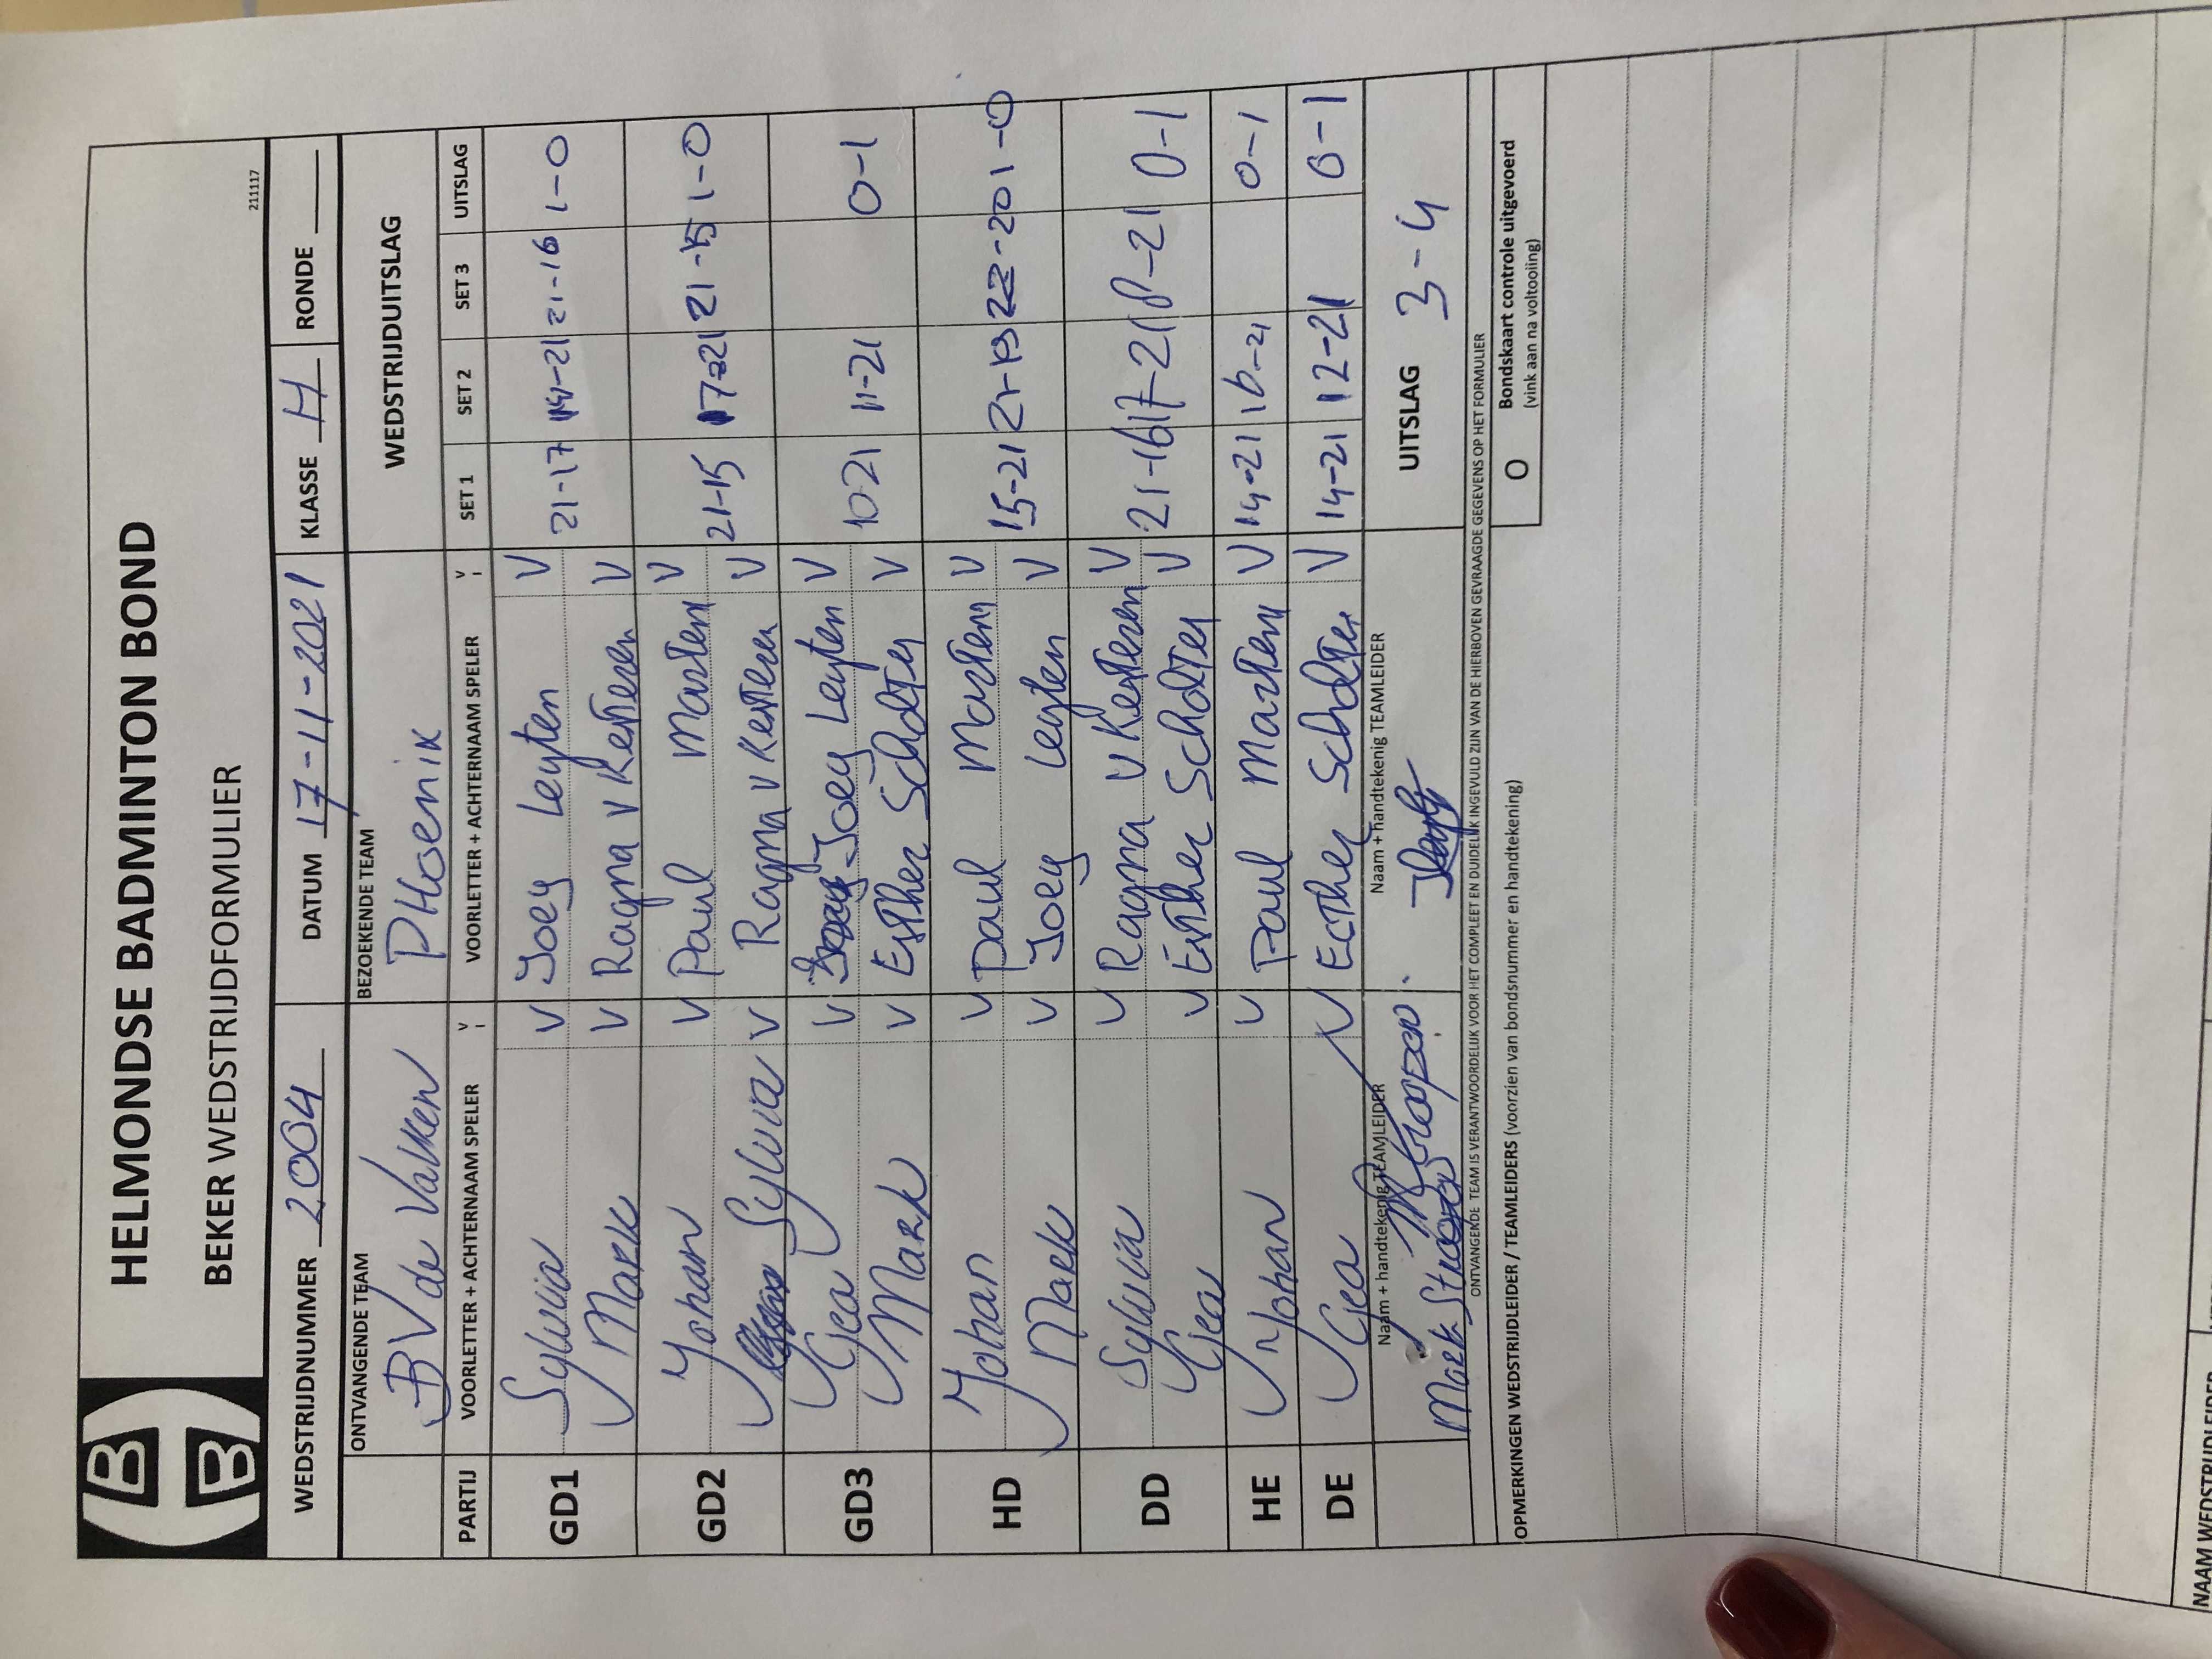 HELMONDSE BADMINTON BOND
BEKER WEDSTRIJDFORMULIER
211117
WEDSTRIJDNUMMER 2004 DATUM 17-11-2021 KLASSE H RONDE
ONTVANGENDE TEAM BEZOEKENDE TEAM WEDSTRIJDUITSLAG
BV de Valken PHoenix
PARTIJ VOORLETTER + ACHTERNAAM SPELER V VOORLETTER + ACHTERNAAM SPELER V SET 1 SET 2 SET 3 UITSLAG
GD1 Sylvia V Joey Leyten V 21-17 14-21 21-16 1-0
Mark V Ragna v Kesteren V
GD2 Johan V Paul Martens V 21-15 17-21 21-15 1-0
Sylvia V Ragna v Kesteren V
GD3 Gea V Joey Leyten V 10-21 11-21 0-1
Mark V Esther Scholten V
HD Johan V Paul Martens V 15-21 21-19 22-20 1-0
Mark V Joey Leyten V
DD Sylvia V Ragna v Kesteren V 21-16 17-21 8-21 0-1
Gea V Esther Scholten V
HE Johan V Paul Martens V 14-21 16-21 0-1
DE Gea V Esther Scholten V 14-21 12-21 0-1
Naam + handtekenig TEAMLEIDER Naam + handtekenig TEAMLEIDER UITSLAG 3-4
Mark
ONTVANGENDE TEAM IS VERANTWOORDELIJK VOOR HET COMPLEET EN DUIDELIJK INGEVULD ZIJN VAN DE HIERBOVEN GEVRAAGDE GEGEVENS OP HET FORMULIER
OPMERKINGEN WEDSTRIJDLEIDER / TEAMLEIDERS (voorzien van bondsnummer en handtekening) O Bondskaart controle uitgevoerd
(vink aan na voltooiing)
NAAM WEDSTRIJDLEIDER